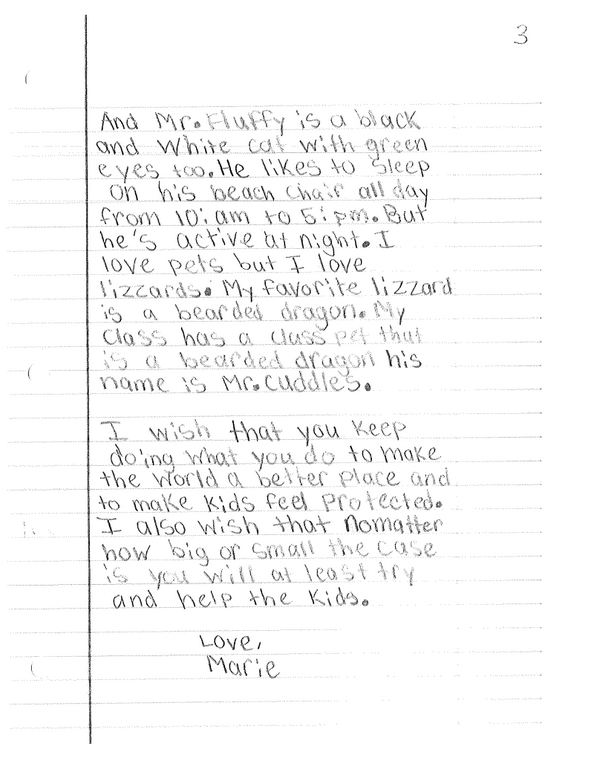 3
And Mr. Fluffy is a black
and white cat with green
eyes too. He likes to sleep
on his beach chair all day
from 10: am to 5: pm. But
he's active at night. I
love pets but I love
lizzards. My favorite lizzard
is a bearded dragon. My
class has a class pet that
is a bearded dragon his
name is Mr. Cuddles.
I wish that you keep
doing what you do to make
the world a better place and
to make kids feel protected.
I also wish that nomatter
how big or small the case
is you will at least try
and help the kids.
Love,
Marie